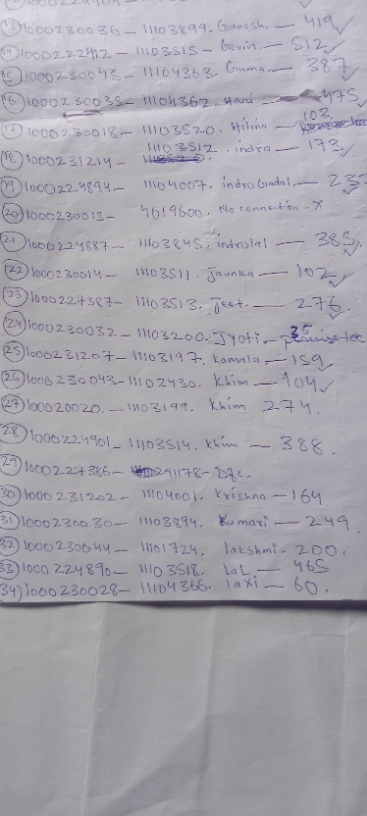 13) 1000230036 - 11103899. Ganesh. - 419 ✓
14) 1000222412 - 11103515 - Govin. - 512 ✓
15) 1000230045 - 11104363. Guma. - 387 ✓
16) 1000230035 - 11104362. Hari - 475 ✓
17) 1000230018 - 11103520. 103
18) 1000231214 - 11103512. indra - 173 ✓
19) 1000224894 - 11104007. indra
20) 1000230013 - 4619600. No connection - X
21) 1000224887 - 11103845. indralal - 385 ✓
22) 1000230014 - 11103511. Jaunka - 102 ✓
23) 1000227387 - 11103513. Jeet. - 276 ✓
24) 1000230032 - 11103200. Jyoti - 35
25) 1000231207 - 11103197. Kamala - 159 ✓
26) 1000230043 - 11102430. Khim - 104 ✓
27) 100020020. - 11103199. Khim 274.
28) 1000224901 - 11103514. Khim - 388.
29) 1000227386 - 29178 -
30) 1000231202 - 11104001. Krishna - 164
31) 1000230030 - 11103894. Kumari - 249.
32) 1000230044 - 11101724. lakshmi - 200.
33) 1000224890 - 11103518. LaL - 465
34) 1000230028 - 11104366. laxi - 60.